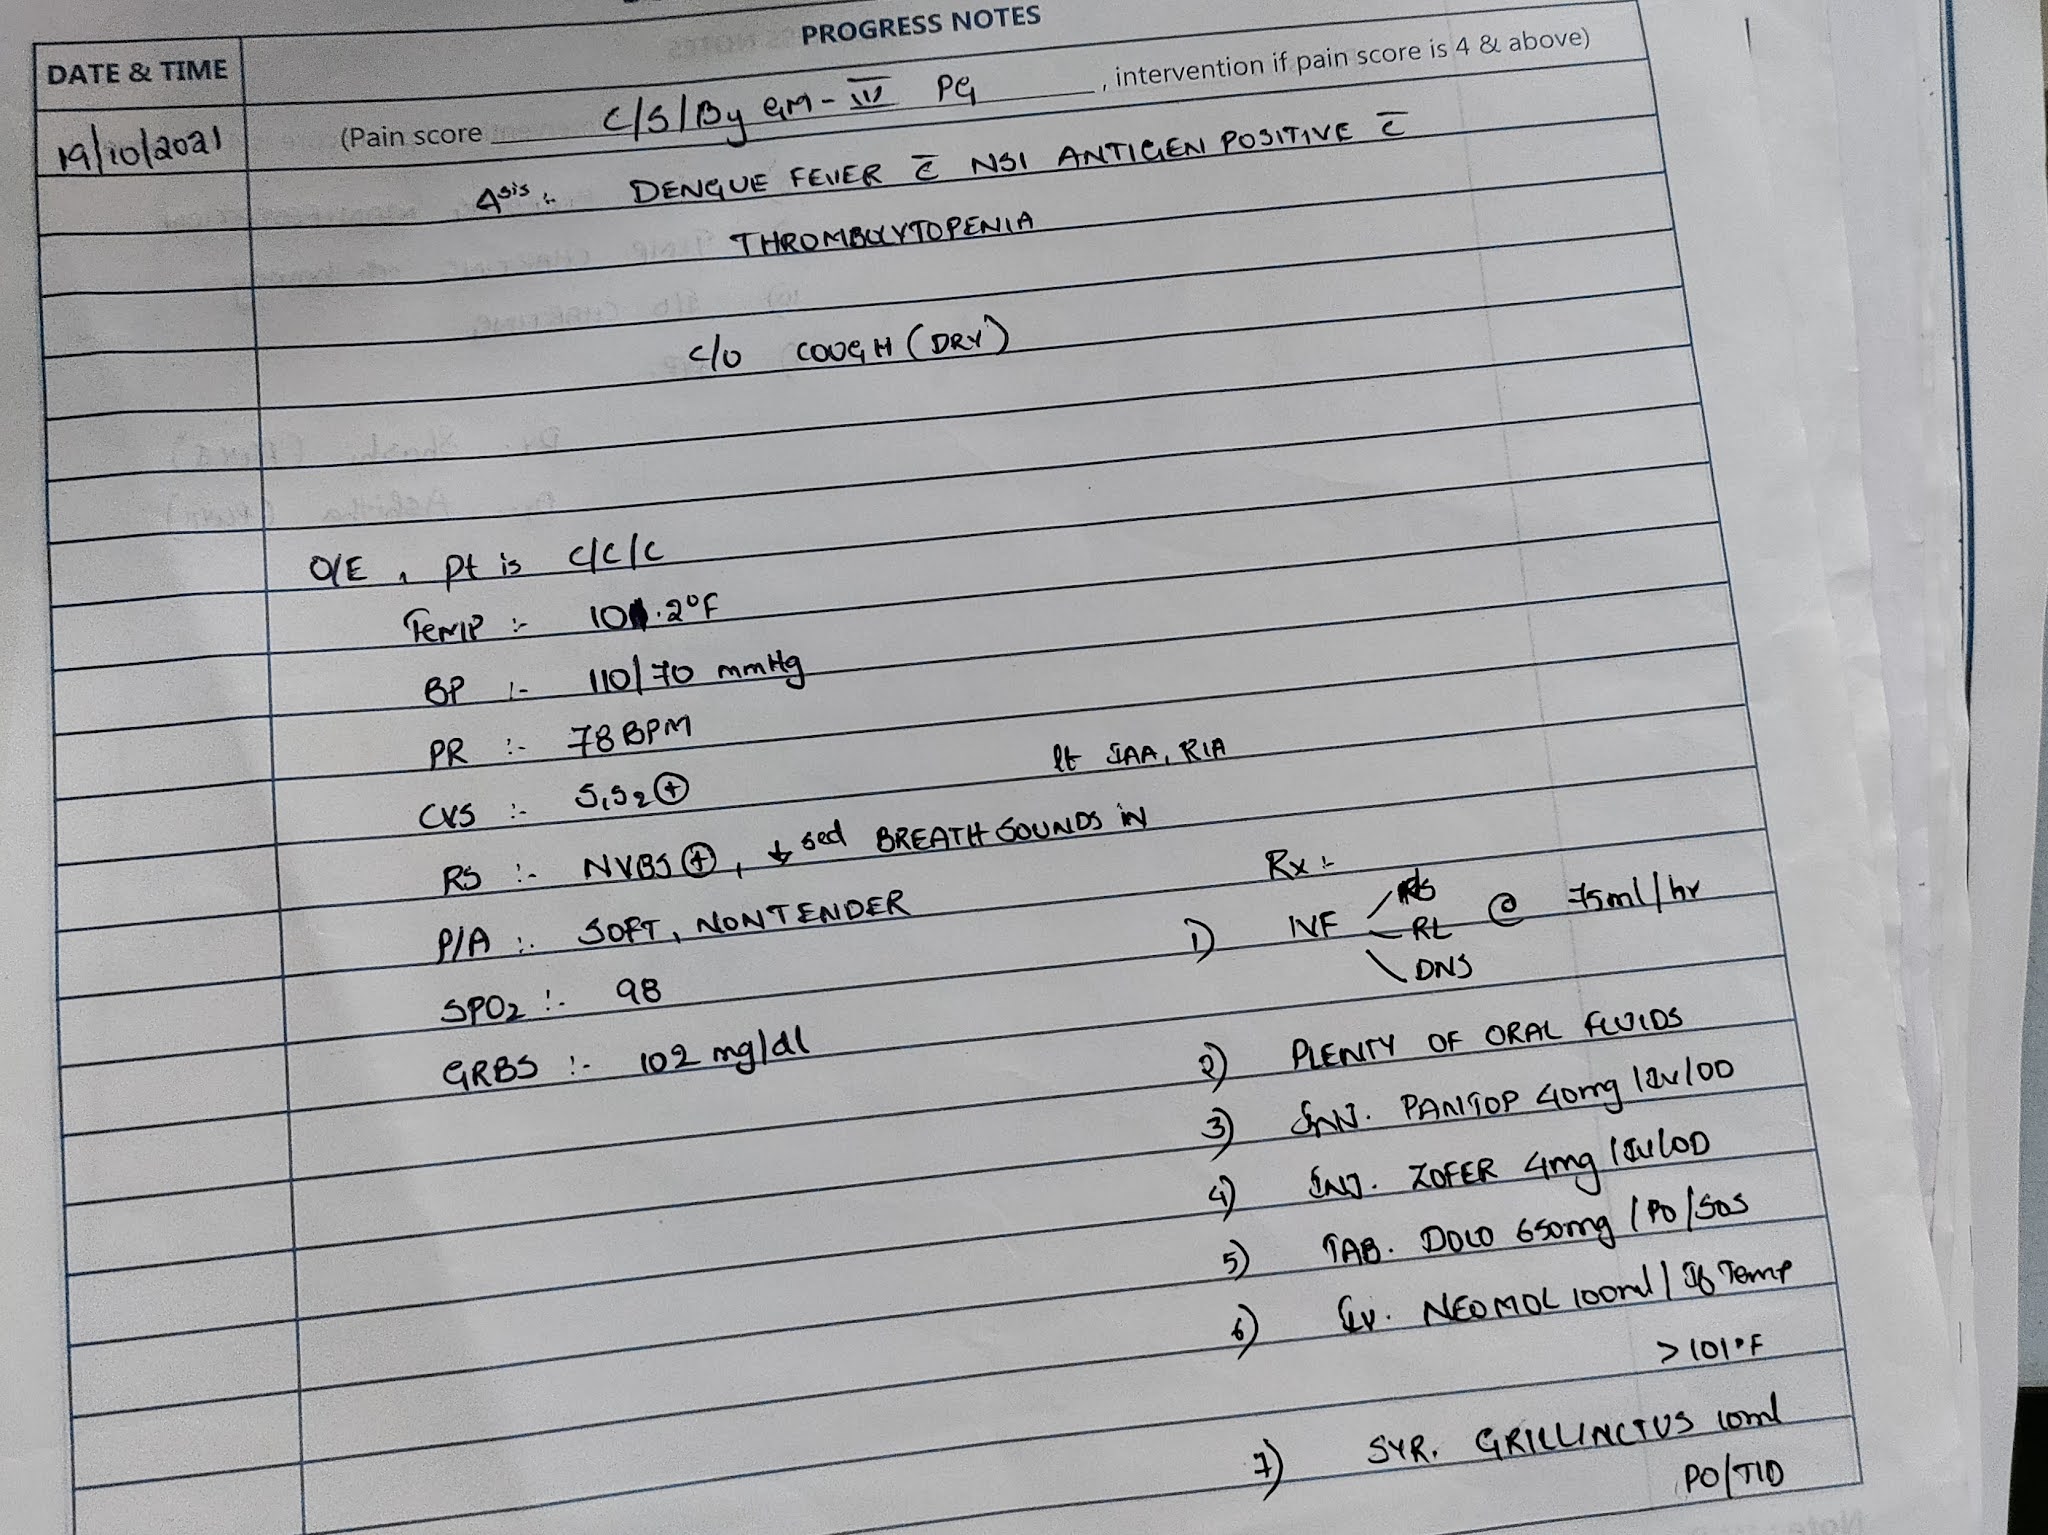 PROGRESS NOTES
DATE & TIME
(Pain score C/S/By GM-III PG, intervention if pain score is 4 & above)
19/10/2021
Δsis :- DENGUE FEVER c̄ NSI ANTIGEN POSITIVE c̄
THROMBOCYTOPENIA
C/O COUGH (DRY)
O/E, Pt is C/C/C
TEMP :- 101.2°F
BP :- 110/70 mmHg
PR :- 78 BPM
CVS :- S1S2⊕
lt IAA, RIA
RS :- NVBS⊕, ↓sed BREATH SOUNDS IN
P/A :- SOFT, NONTENDER
SPO2 :- 98
GRBS :- 102 mg/dl
Rx :-
1) IVF RL @ 75ml/hr
DNS
2) PLENTY OF ORAL FLUIDS
3) INJ. PANTOP 40mg/IV/OD
4) INJ. ZOFER 4mg/IV/OD
5) TAB. DOLO 650mg/PO/SOS
6) IV. NEOMOL 100ml/If Temp
>101°F
7) SYR. GRILLINCTUS 10ml
PO/TID